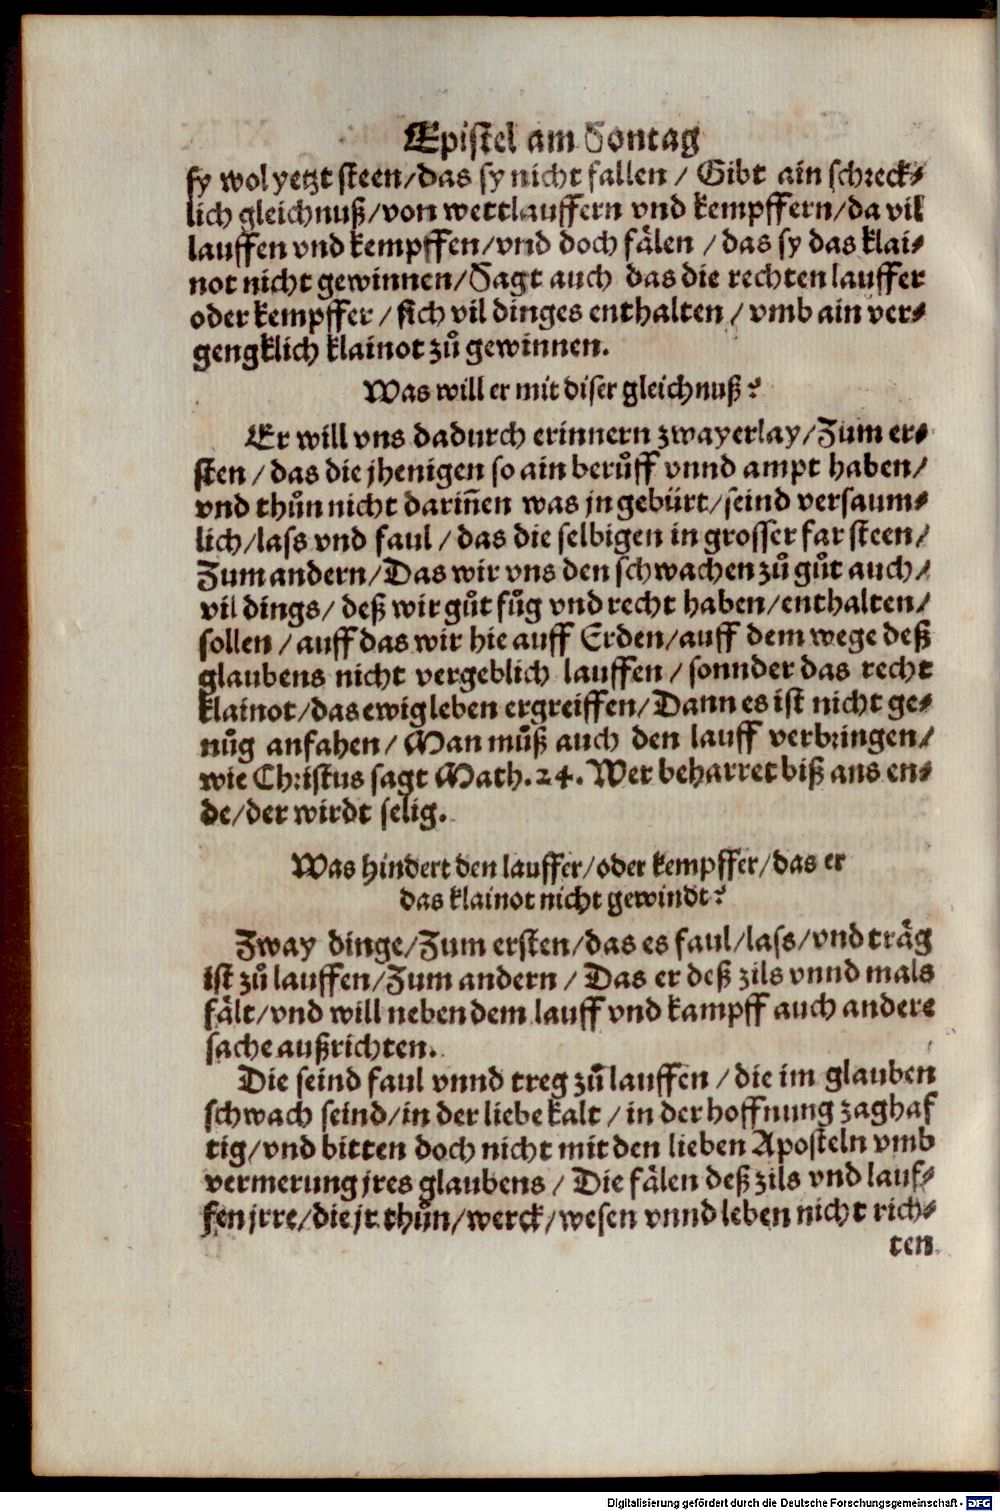 Epistel am Sontag
sy wol yetzt steen/das sy nicht fallen / Gibt ain schreck⸗
lich gleichnuß/von wettlauffern vnd kempffern/da vil
lauffen vnd kempffen/vnd doch fälen / das sy das klai⸗
not nicht gewinnen/Sagt auch das die rechten lauffer
oder kempffer / sich vil dinges enthalten / vmb ain ver⸗
gengklich klainot zů gewinnen.
Was will er mit diser gleichnuß?
Er will vns dadurch erinnern zwayerlay/Zum er⸗
sten / das die jhenigen so ain berůff vnnd ampt haben/
vnd thůn nicht dariñen was jn gebürt/seind versaum⸗
lich/lass vnd faul / das die selbigen in grosser far steen/
Zum andern/Das wir vns den schwachen zů gůt auch/
vil dings/ deß wir gůt fůg vnd recht haben/enthalten/
sollen / auff das wir hie auff Erden/auff dem wege deß
glaubens nicht vergeblich lauffen / sonnder das recht
klainot/das ewig leben ergreiffen/Dann es ist nicht ge⸗
nůg anfahen/ Man můß auch den lauff verbringen/
wie Christus sagt Math.24. Wer beharret biß ans en⸗
de/der wirdt selig.
Was hindert den lauffer/oder kempffer/das er
das klainot nicht gewindt?
Zway dinge/Zum ersten/das es faul/lass/vnd träg
ist zů lauffen/Zum andern / Das er deß zils vnnd mals
fält/vnd will neben dem lauff vnd kampff auch andere
sache außrichten.
Die seind faul vnnd treg zů lauffen / die im glauben
schwach seind/in der liebe kalt / in der hoffnung zaghaf
tig/vnd bitten doch nicht mit den lieben Aposteln vmb
vermerung jres glaubens / Die fälen deß zils vnd lauf⸗
fen jrre/die jr thůn/werck/wesen vnnd leben nicht rich⸗
ten
Digitalisierung gefördert durch die Deutsche Forschungsgemeinschaft - DFG